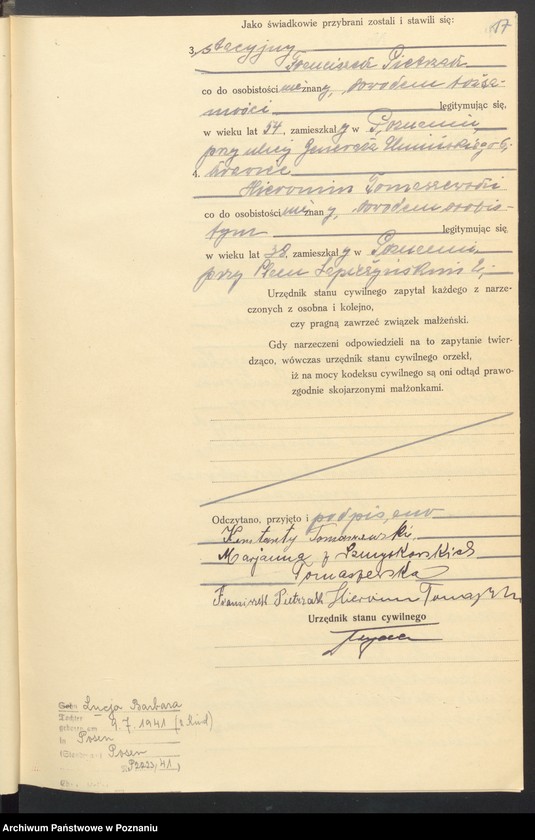 Jako świadkowie przybrani zostali i stawili się:
17
3. stacyjny
Franciszek Pietrzak
co do osobistości nieznany, dowodem tożsa-
mości legitymując się,
w wieku lat 54, zamieszkały w Poznaniu
przy ulicy Generała
4.
Hieronim Tomaszewski
co do osobistości nieznany, dowodem osobis-
tym legitymując się
w wieku lat 38, zamieszkały w Poznaniu
przy Placu
Urzędnik stanu cywilnego zapytał każdego z narze-
czonych z osobna i kolejno,
czy pragną zawrzeć związek małżeński.
Gdy narzeczeni odpowiedzieli na to zapytanie twier-
dząco, wówczas urzędnik stanu cywilnego orzekł,
iż na mocy kodeksu cywilnego są oni odtąd prawo-
zgodnie skojarzonymi małżonkami.
Odczytano, przyjęto i podpisano
Konstanty Tomaszewski
Marjanna z
Tomaszewska
Franciszek Pietrzak Hieronim Tomaszewski
Urzędnik stanu cywilnego
Lucja Barbara
Tochter
geboren am 9.7.1941
in Posen
Posen
41
Archiwum Państwowe w Poznaniu